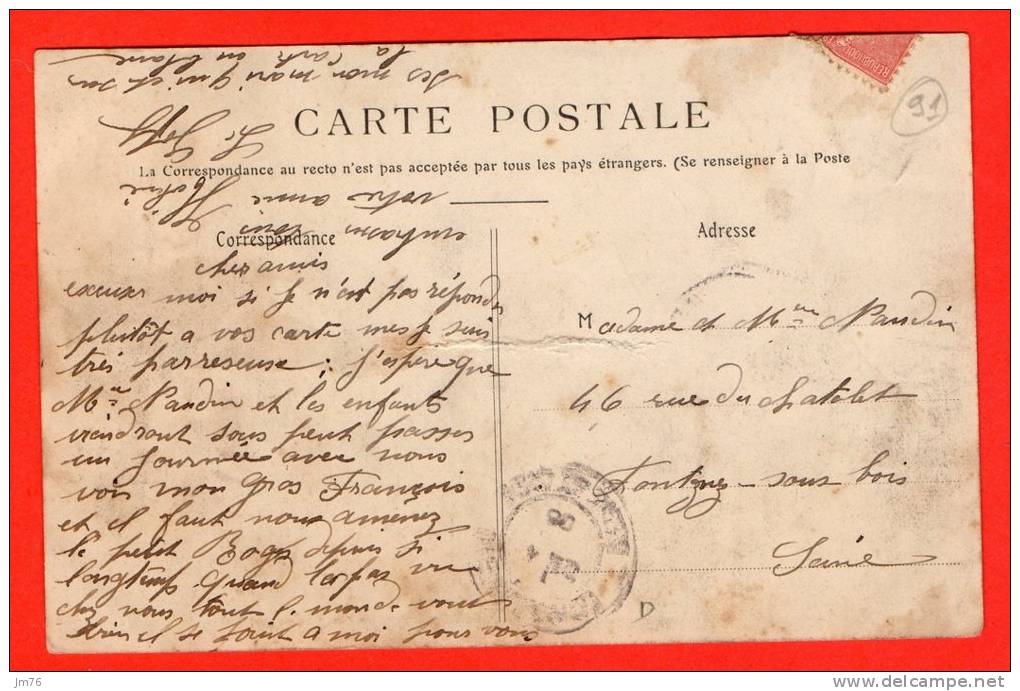 CARTE POSTALE
La Correspondance au recto n'est pas acceptée par tous les pays étrangers. (Se renseigner à la Poste
Correspondance
Adresse
REPUBLIQUE
91
cher amis
excuser moi si je n'ést pas répondu
plutôt a vos carte mes je suis
très parreseuse; j'espere que
Mme Naudin et les enfants
viendront sous peut passer
un journée avec nous
voir mon gros François
et il faut nous amenez
le petit depuis si
longtemp quand
chez vous tout le monde vont
bien il se joint a moi pour vous
embrasser
votre amie
Madame et Mme Naudin
46 rue du chatelet
Fontenay-sous bois
Seine
D
jm76
delcampe.net